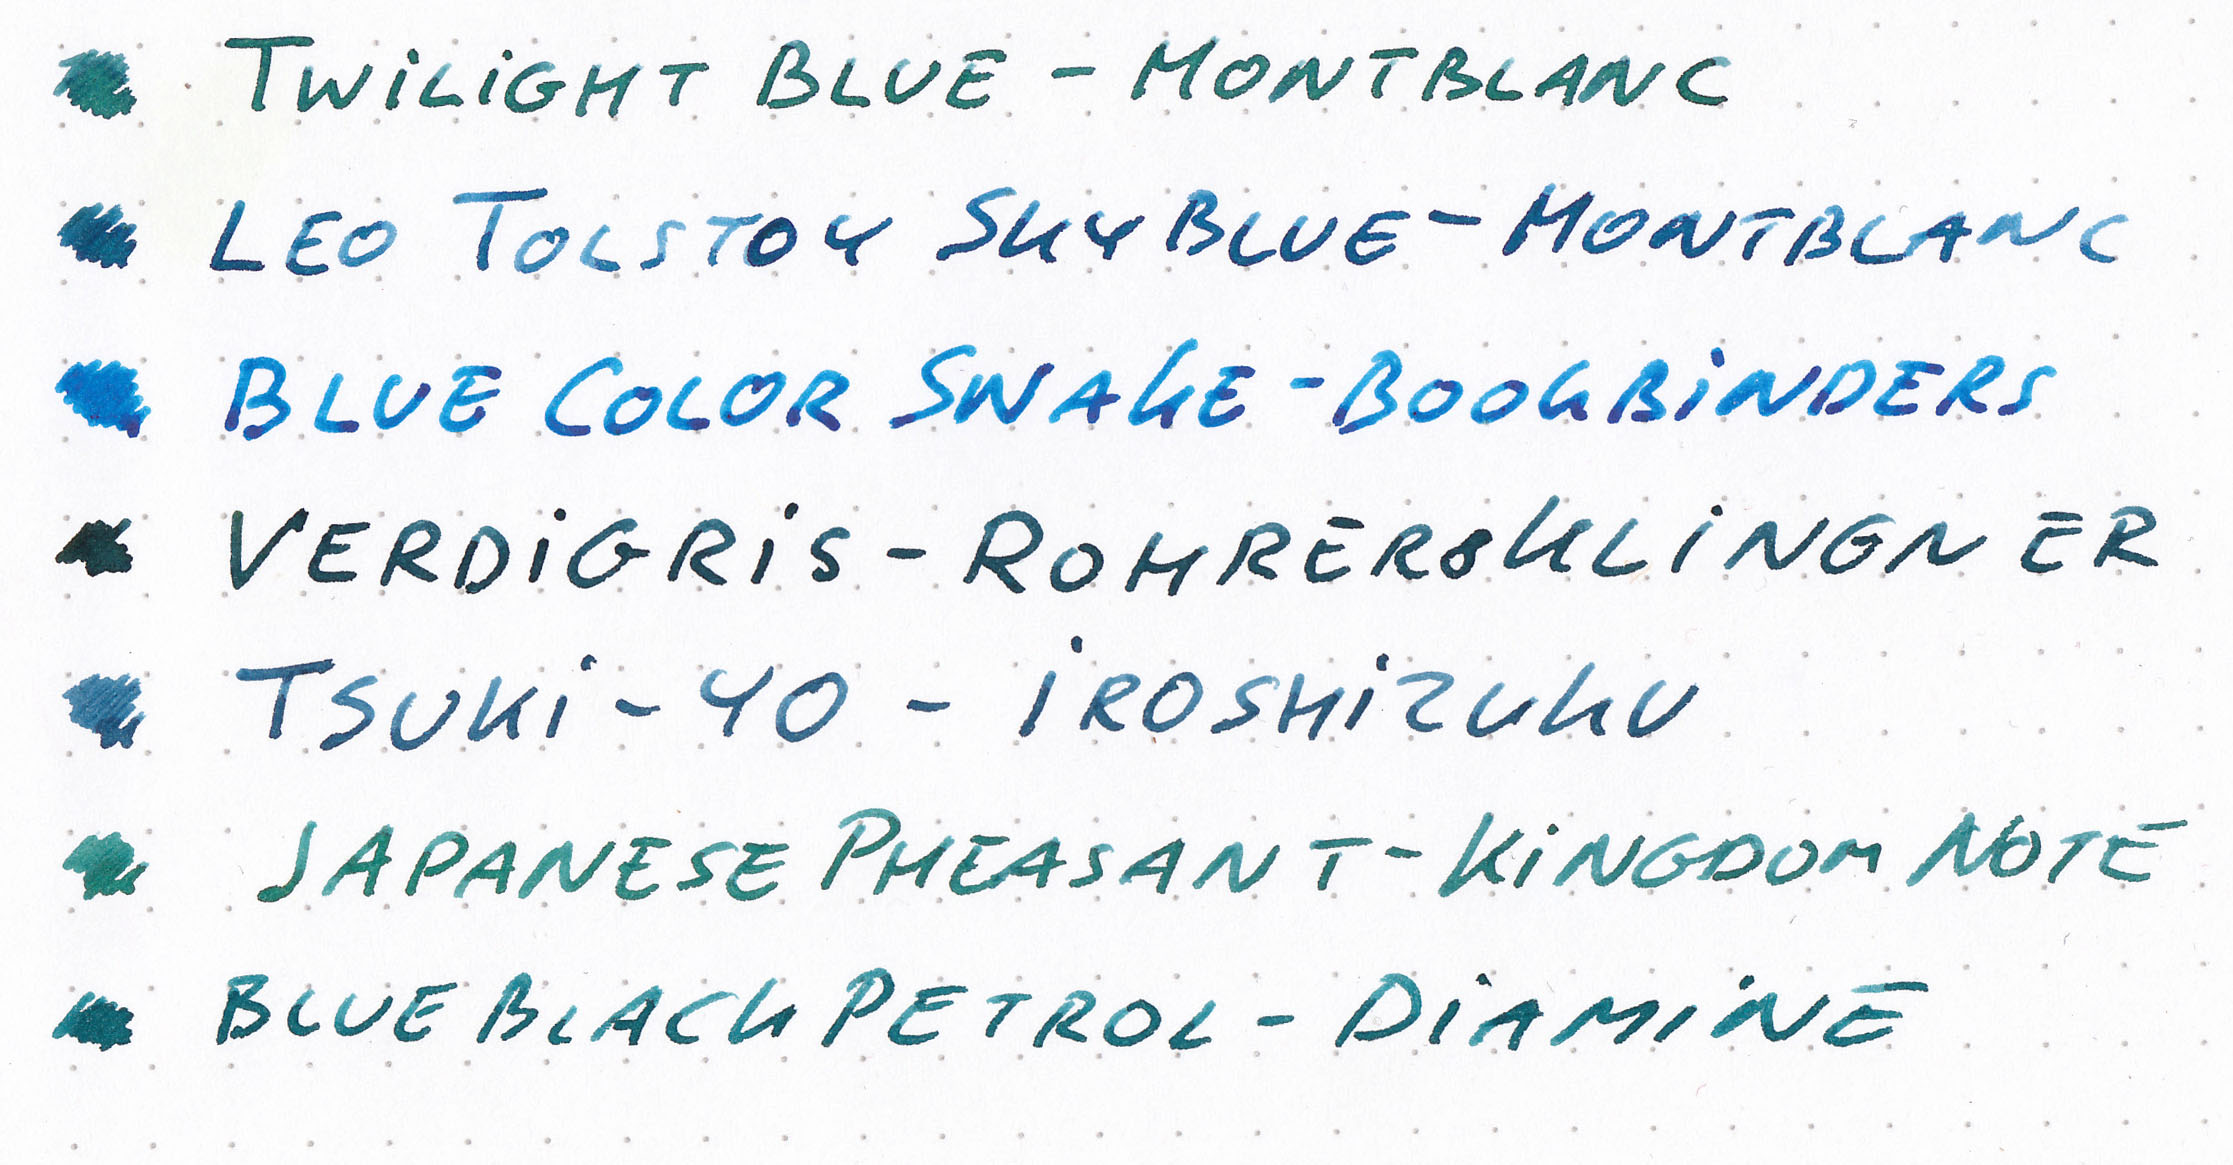 Twilight Blue - Montblanc
Leo Tolstoy Sky Blue - Montblanc
Blue Color Snake - Bookbinders
Verdigris - Rohrer&Klingner
Tsuki-yo - iroshizuku
Japanese Pheasant - Kingdom Note
Blue Black Petrol - Diamine